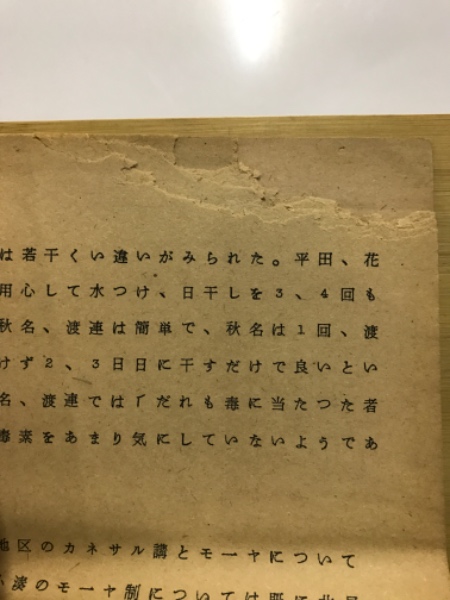 は若干くい違いがみられた。平田、花
用心して水つけ、日干しを3、4回も
秋名、渡連は簡単で、秋名は1回、渡
けず2、3日日に干すだけで良いとい
名、渡連では「だれも毒に当たつた者
毒素をあまり気にしていないようであ
地区のカネサル講とモーヤについて
湊のモーヤ制については既に